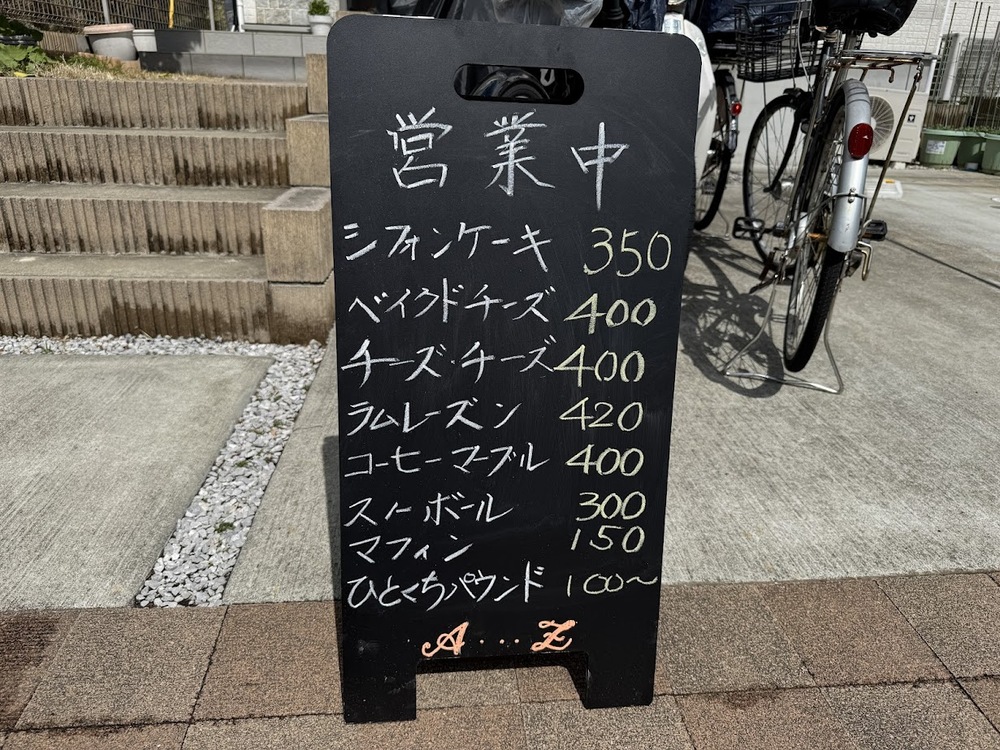 営業中
シフォンケーキ 350
ベイクドチーズ 400
チーズ・チーズ 400
ラムレーズン 420
コーヒーマーブル 400
スノーボール 300
マフィン 150
ひとくちパウンド 100〜
A...Z